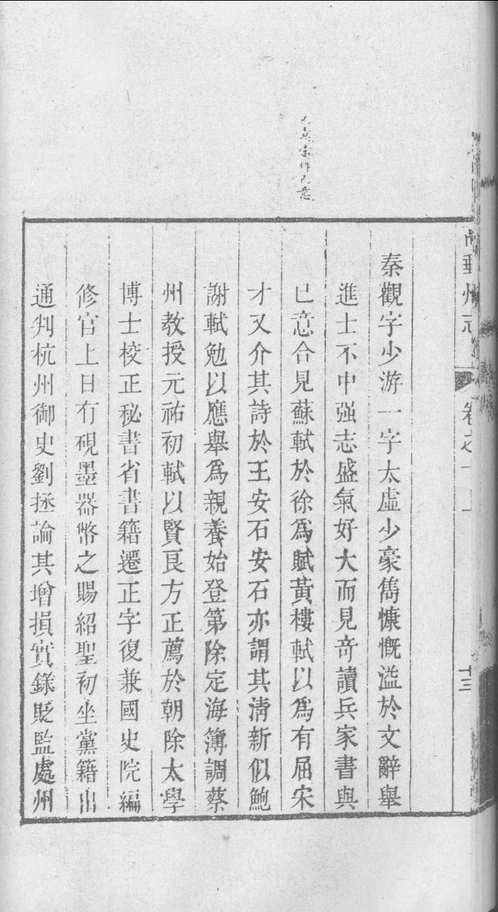 秦觀字少游一字太虛少豪雋慷慨溢於文辭舉
進士不中强志盛氣好大而見奇讀兵家書與
已意合見蘇軾於徐爲賦黃樓軾以爲有屈宋
才又介其詩於王安石安石亦謂其淸新似鮑
謝軾勉以應舉爲親養始登第除定海簿調蔡
州教授元祐初軾以賢良方正薦於朝除太學
博士校正秘書省書籍遷正字復兼國史院編
修官上日有硯墨器幣之賜紹聖初坐黨籍出
通判杭州御史劉拯論其增損實錄貶監處州